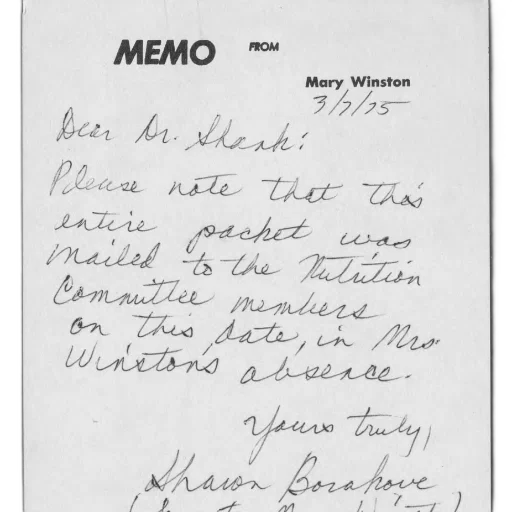 MEMO FROM
Mary Winston
3/7/75
Dear Dr. Shank:
Please note that this
entire packet was
mailed to the Nutrition
Committee members
on this date, in Mrs.
Winston's absence.
Yours truly,
Sharon Borahove